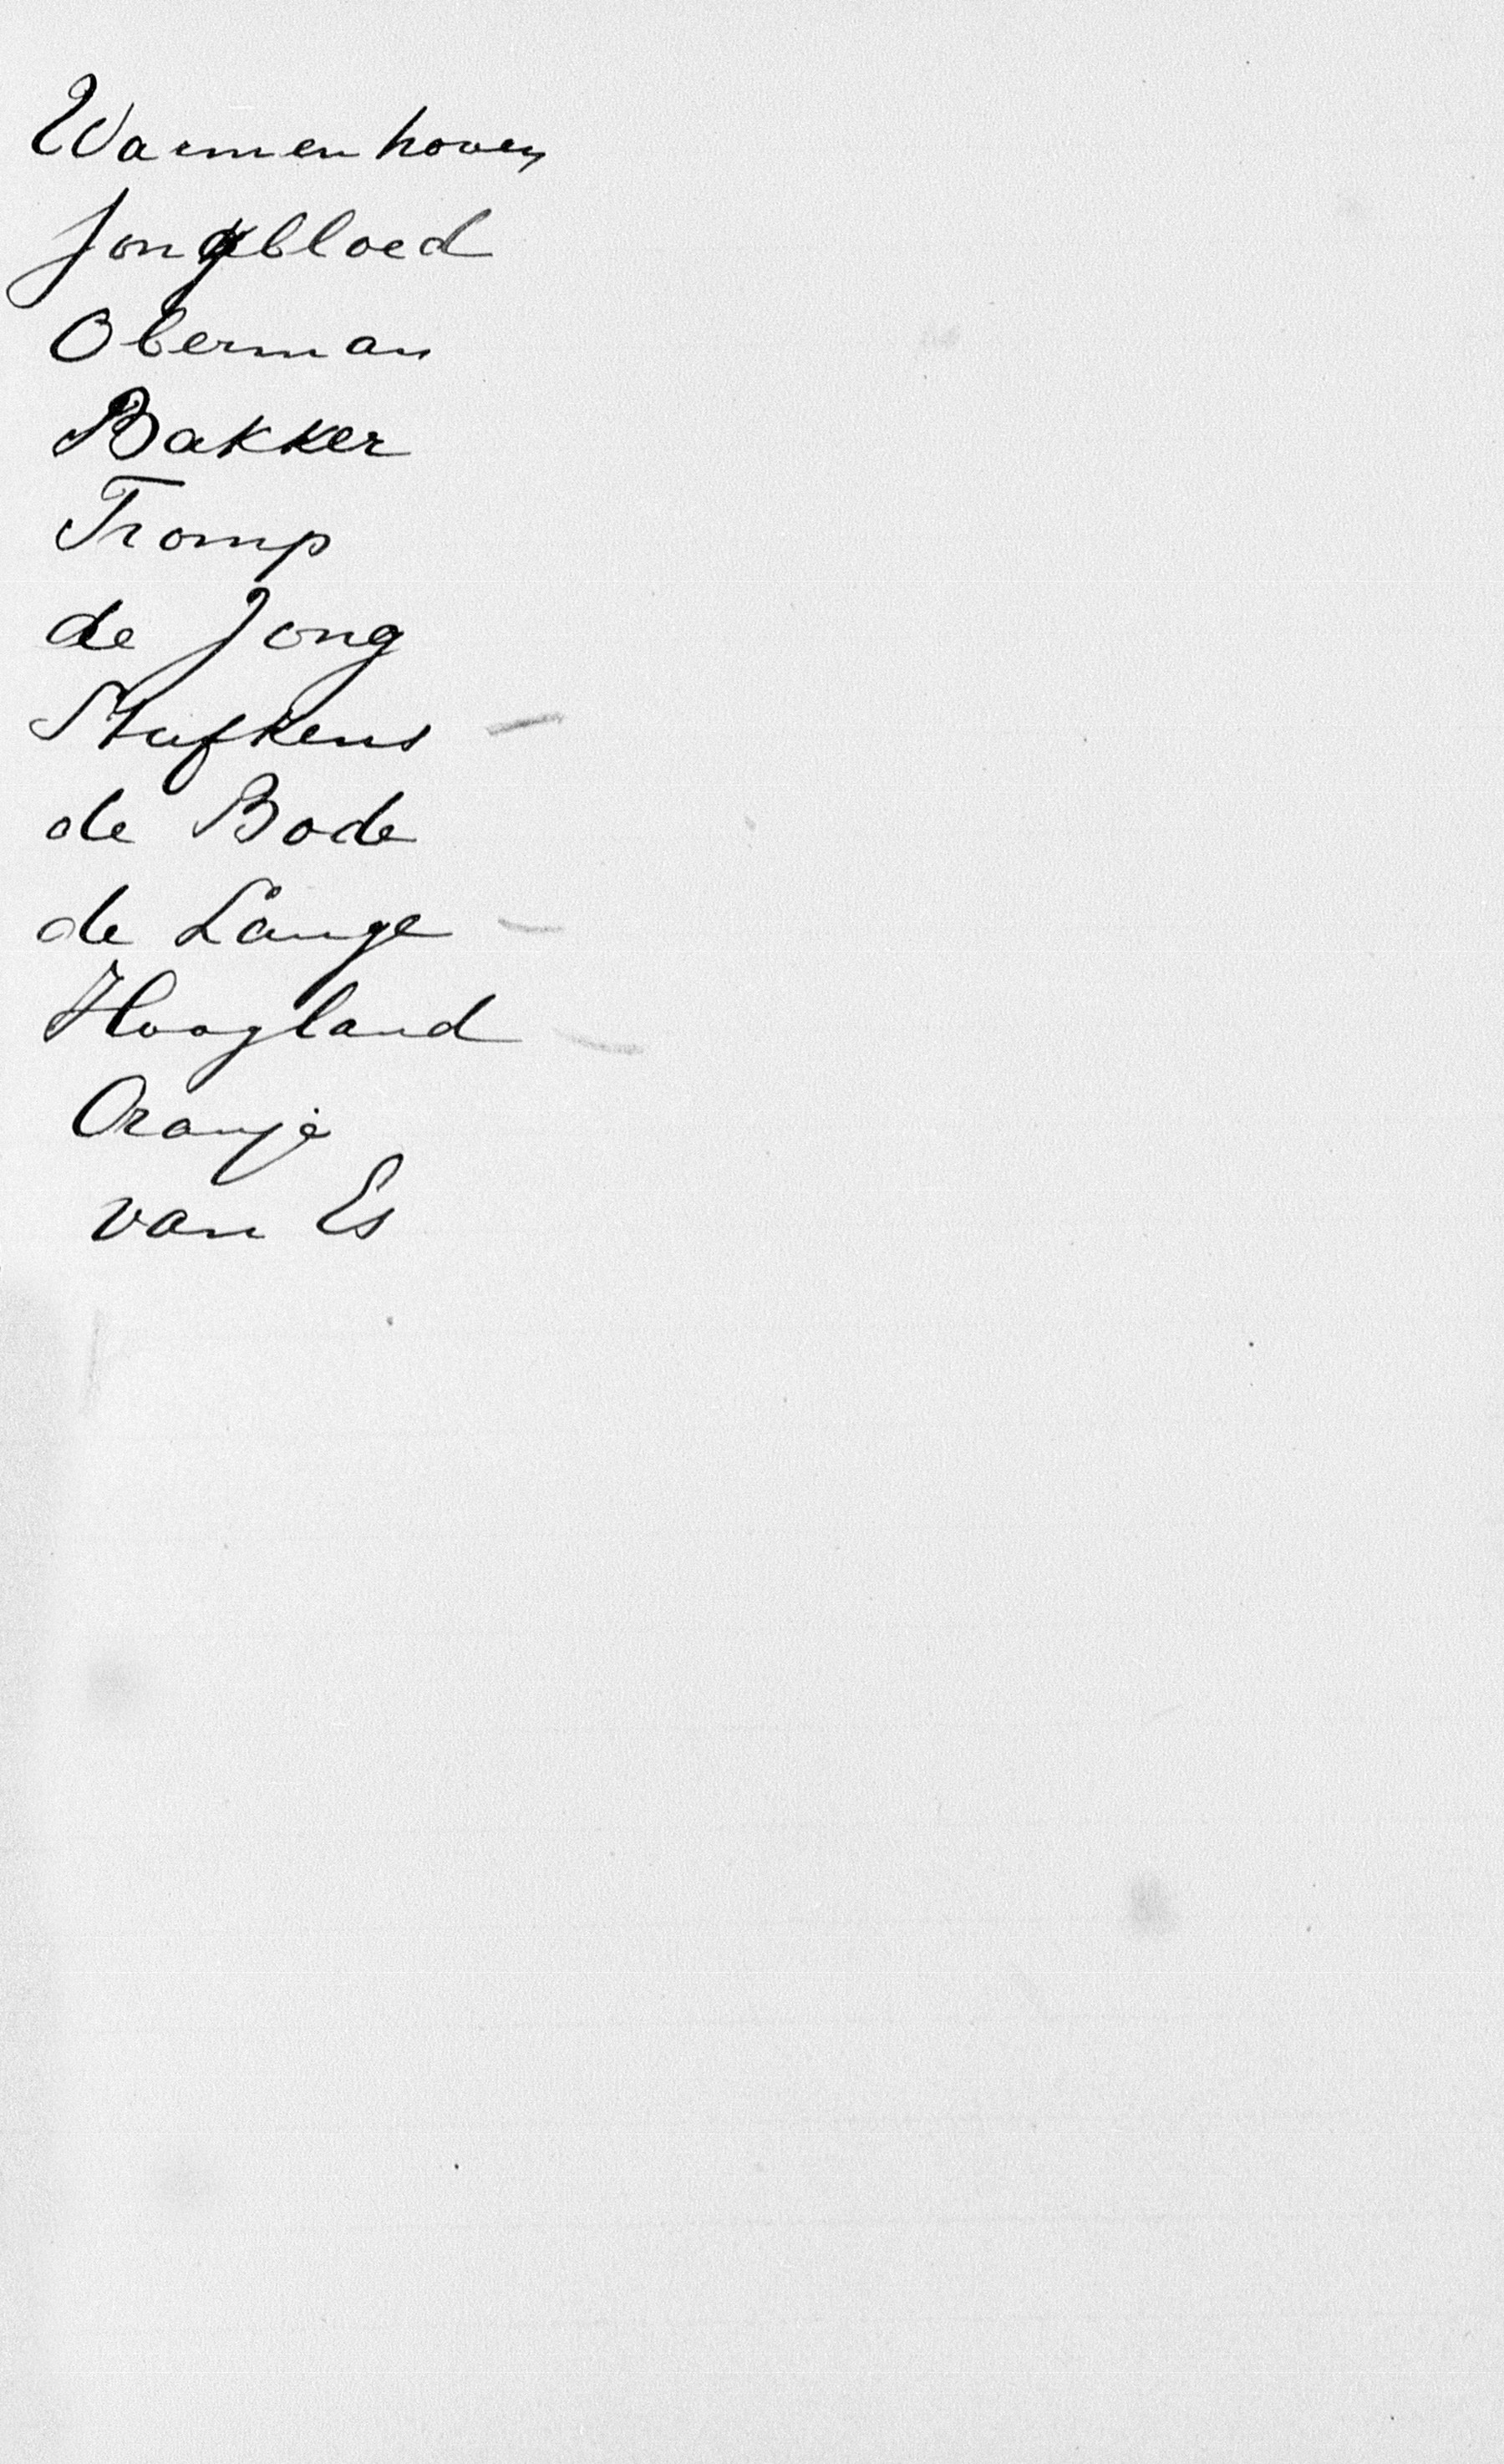 Warmenhoven
Jongbloed
Oberman
Bakker
Tromp
de Jong
Stufkens -
de Bode
de Lange -
Hoogland -
Oranje
van Es